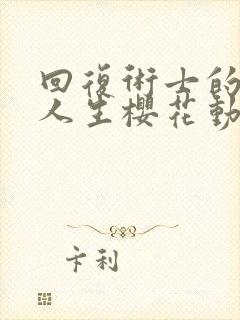 回復術士的
人生櫻花動
卡利